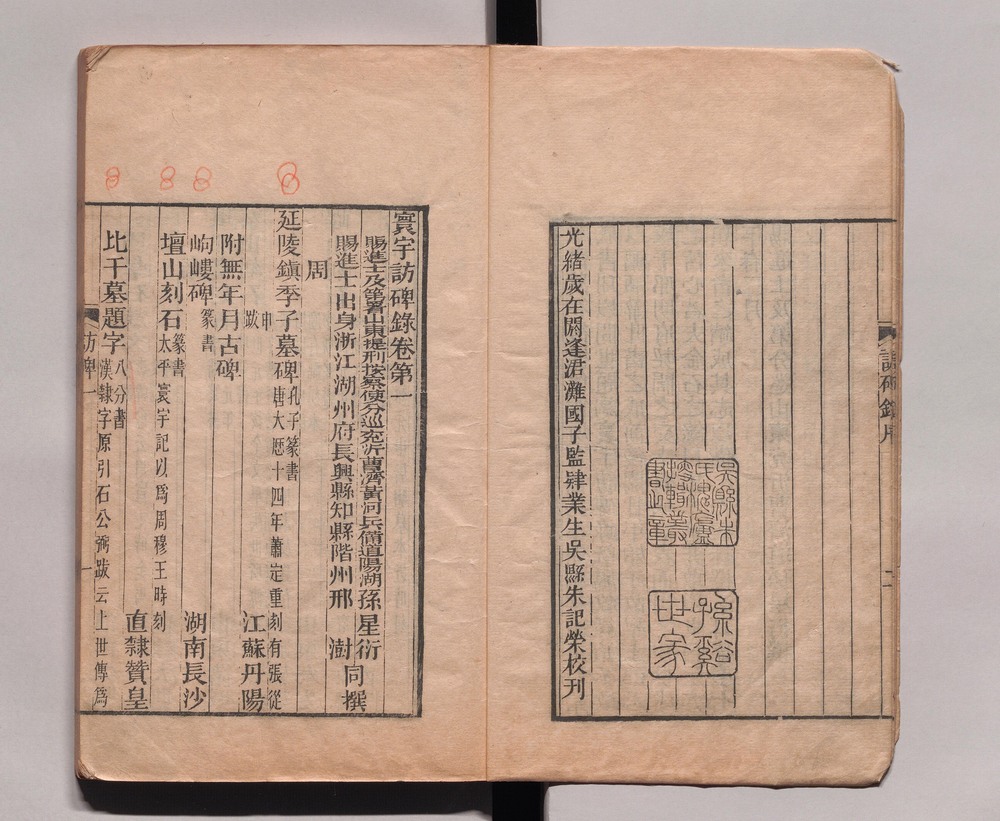 光緒歲在閼逢涒灘國子監肄業生吳縣朱記榮校刊
吳縣朱
氏槐廬
孫谿
世家
二
寰宇訪碑錄卷第一
賜進士及第署山東提刑按察使分巡兗沂曹濟黃河兵備道陽湖孫星衍
賜進士出身浙江湖州府長興縣知縣階州邢澍
同撰
周
延陵鎮季子墓碑 孔子篆書
唐大歷十四年蕭定重刻有張從
申跋
江蘇丹陽
附無年月古碑
岣嶁碑 篆書
湖南長沙
壇山刻石 篆書
太平寰宇記以爲周穆王時刻
直隸贊皇
比干墓題字 八分書
漢隸字原引石公弼跋云上世傳爲
訪碑一
一